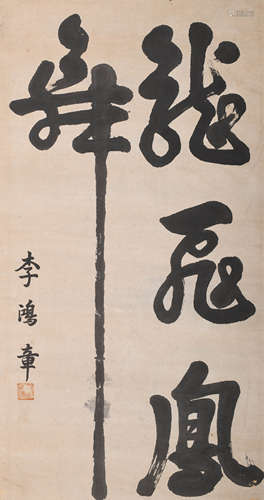 龍飛鳳
舞
李鴻章